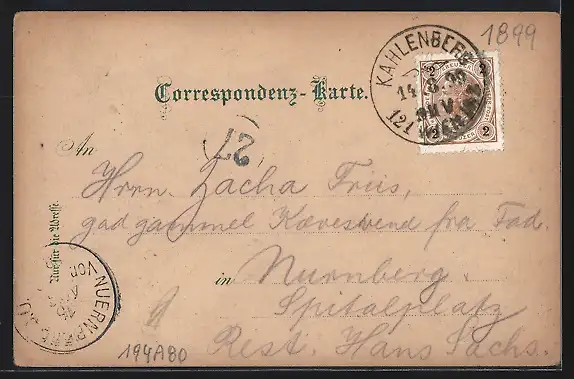 1899
KAHLENBERG
14.8.99
121
2 2
2 2
Correspondenz-Karte.
27
An
Herrn. Zacha Friis,
gad gammel Kæveswend fra Fød.
Nur für die Adresse.
in Nurnberg.
Spitalplatz
Rest. Hans Sachs.
NUERNBERG
194A80